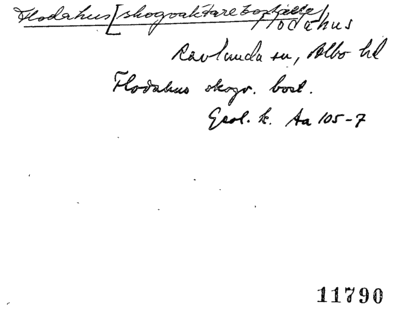 Flodahus [skogvaktarebostället]
Flodahus
Ravlunda sn, Albo hd
Flodahus skogv. bost.
Geol. k. Aa 105-7
11790